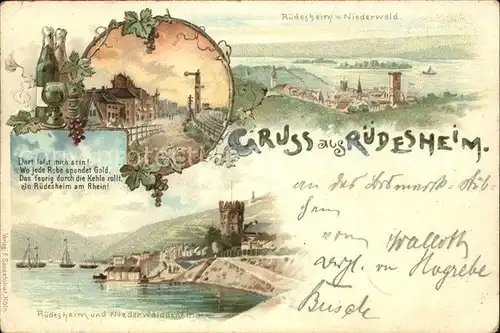 Rüdesheim v. Niederwald.
GRUSS aus RÜDESHEIM.
Dort laßt mich sein!
Wo jede Rebe spendet Gold,
Das feurig durch die Kehle rollt,
In Rüdesheim am Rhein!
an das Bismarck-
vom Walloth
von Hogrebe
Busch
Rüdesheim und Niederwalddenkmal.
Verlag F. Köln.